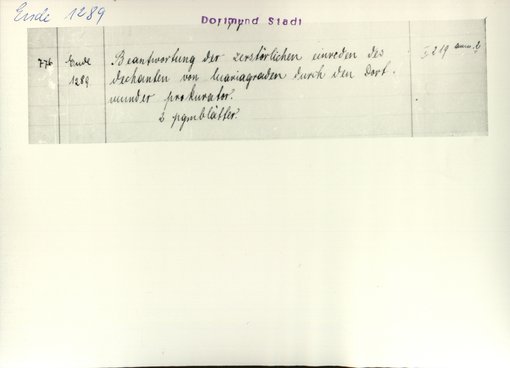 Ende 1289
Dortmund Stadt
776 Ende 1289
Beantwortung der zerstörlichen einreden des
dechanten von Mariagraden durch den Dort-
munder prokurator.
2 pgmblätter.
I 219 anm.